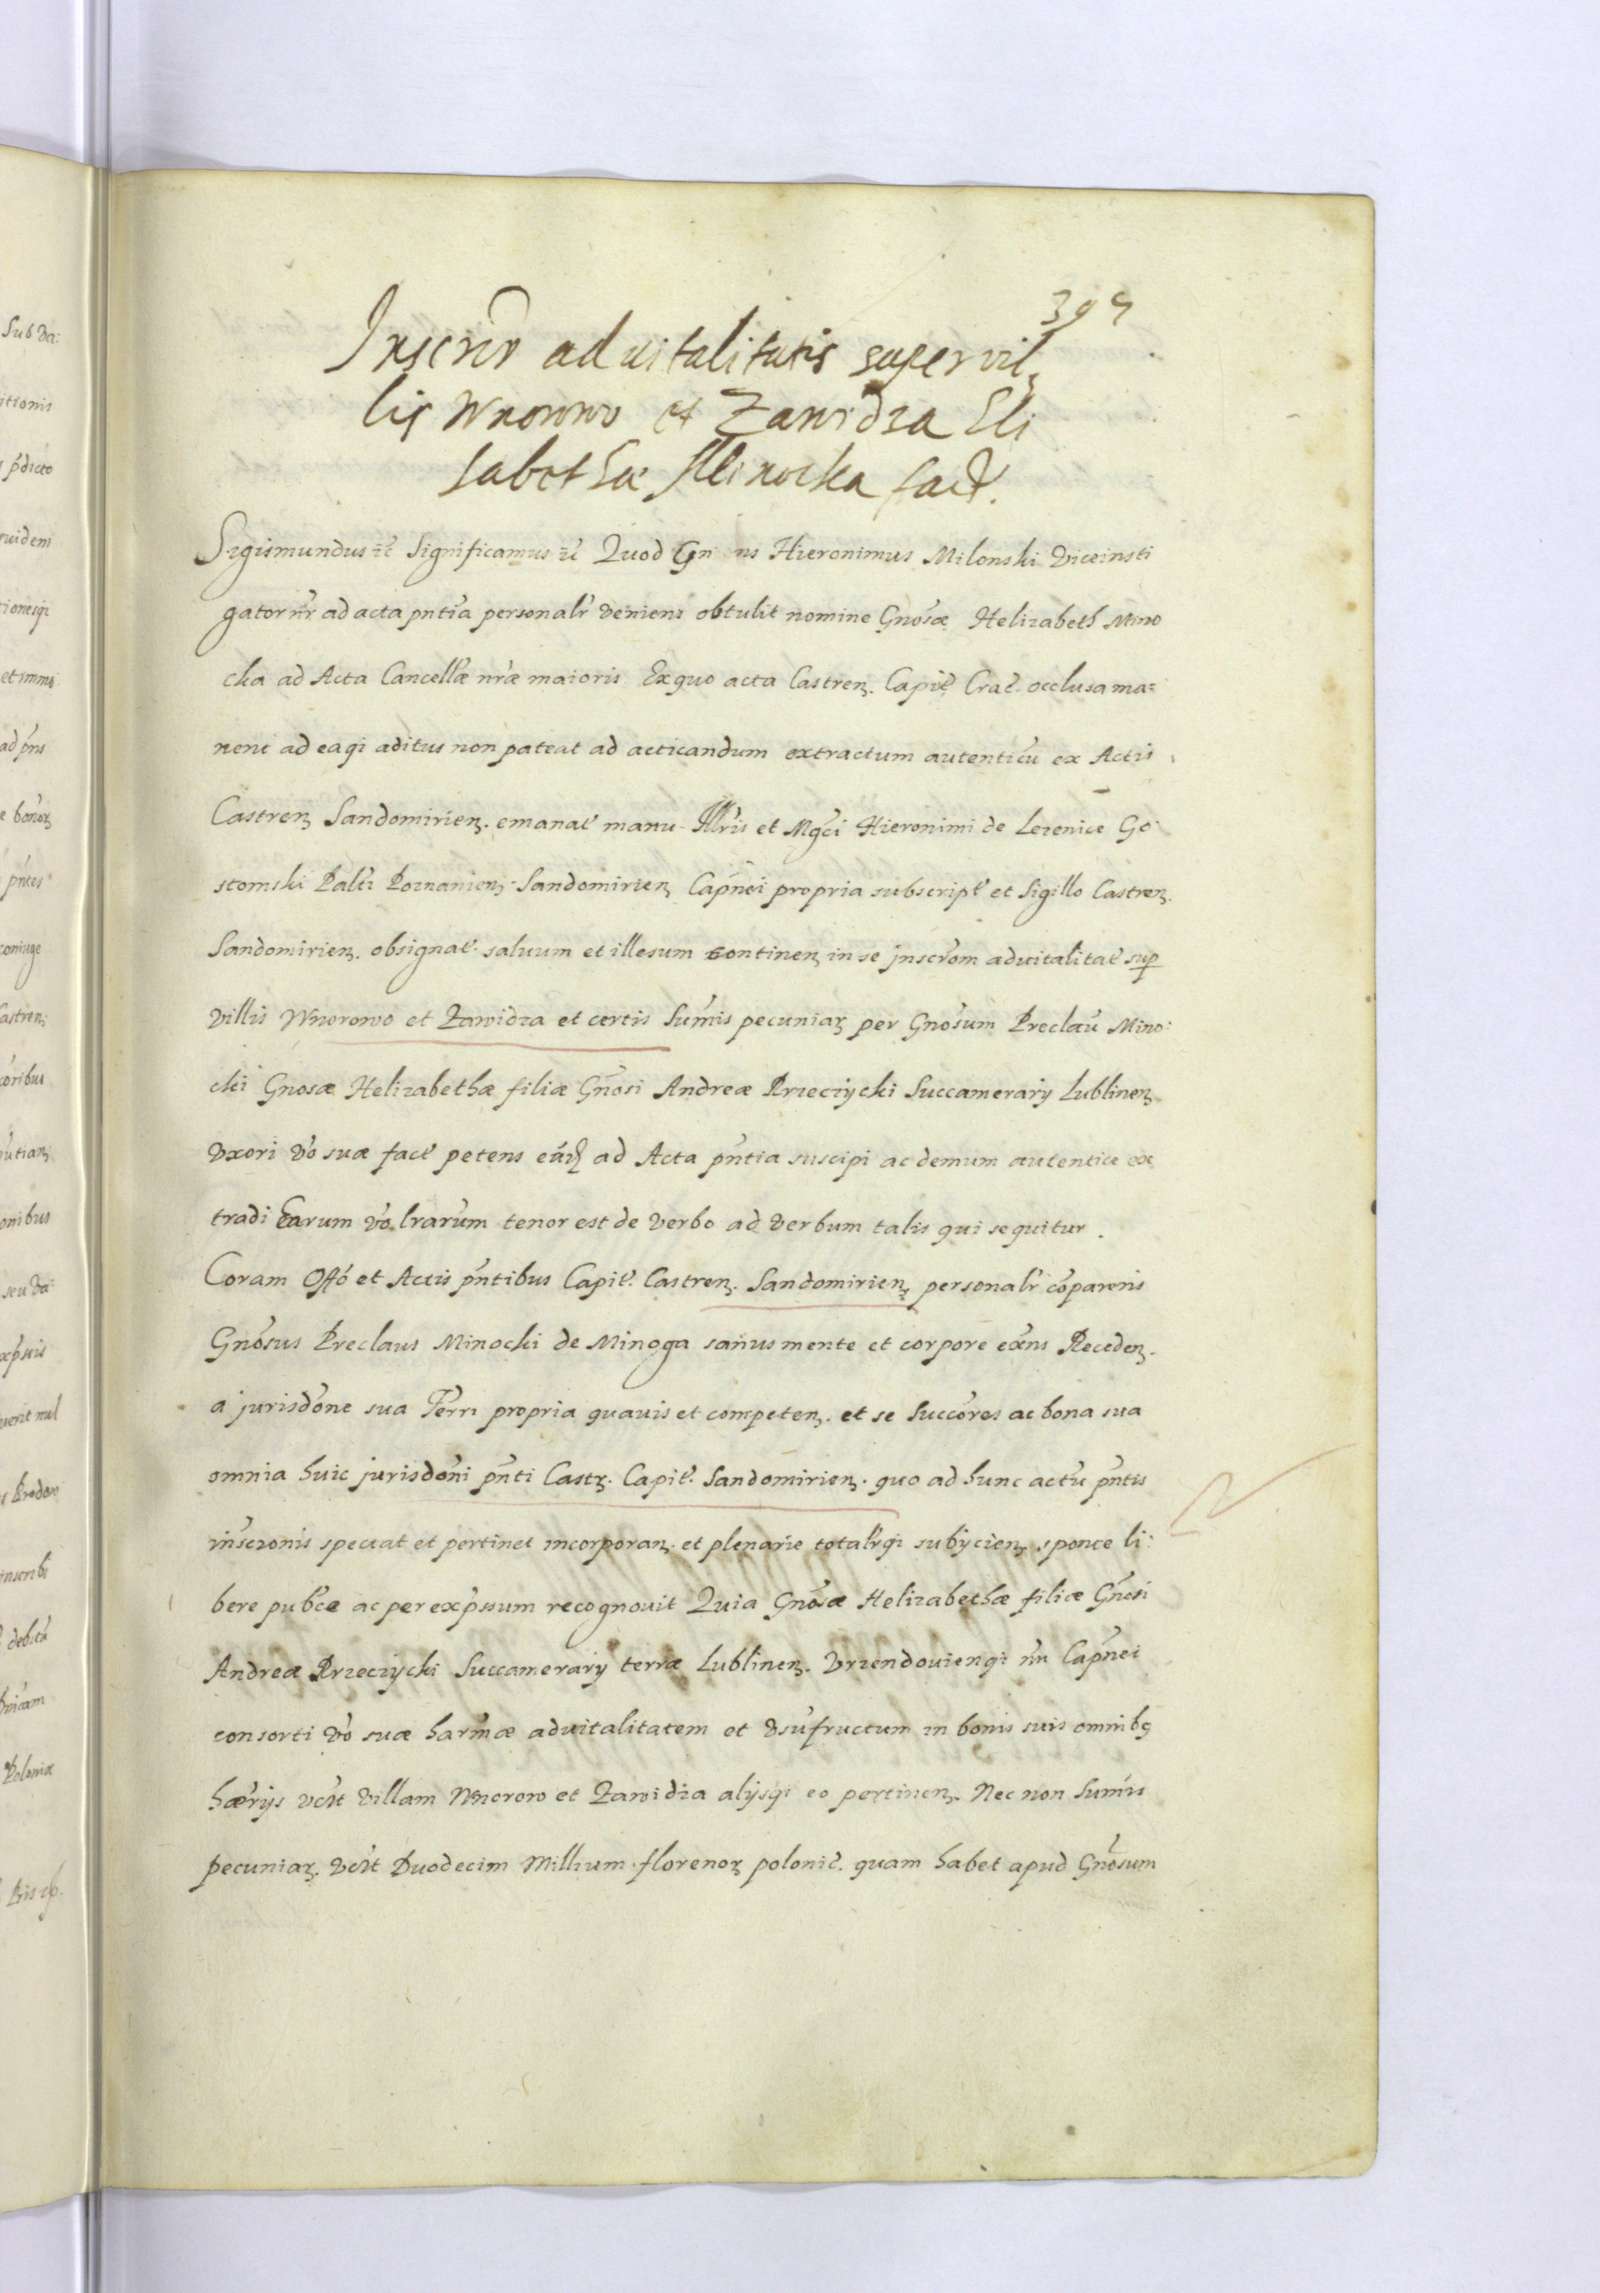 399
Inscrio aduitalitatis super vil
lis Wnorowo et Zawidza Eli
sabethæ Minocka fact.
Sigismundus etc Significamus etc Quod Gnsus Hieronimus Milonski Viceinsti
gator nr̃ ad acta pñtia personalr̃ veniens obtulit nomine Gnosæ Helizabeth Mino
cka ad Acta Cancellæ nr̃æ maioris Ex quo acta Castren. Capit. Crac. occlusa ma=
nent ad eaqȝ aditus non pateat ad acticandum extractum autenticũ ex Actis
Castren Sandomirien. emanat̃ manu Illr̃is et Mgc̃i Hieronimi de Lezenice Go
stomski Palt̃i Poznanien. Sandomirien Capñei propria subscript̃ et Sigillo Castren.
Sandomirien. obsignat̃. saluum et illesum continen in se inscrõm aduitalitat̃ sup
Villis Wnorowo et Zawidza et certis Sum̃is pecuniar per Gnosum Preclaũ Mino
cki Gnosæ Helizabethæ filiæ Gnõsi Andreæ Rzeczycki Succamerary Lublinen
Vxori Vo suæ fact̃ petens eãdẽ ad Acta pñtia suscipi ac demum autentice ex
tradi Earum vo lrarũm tenor est de verbo ad verbum talis qui sequitur.
Coram Offõ et Actis pñtibus Capit̃. Castren. Sandomirien, personalr̃ cõparens
Gnõsus Preclaus Minocki de Minoga sanus mente et corpore exñs Receden.
a jurisdõne sua Terri propria quauis et competen. et se Succõres ac bona sua
omnia huic jurisdõni pñti Castr. Capit̃. Sandomirien. quo ad hunc actũ pñtis
inscronis spectat et pertinet incorporan. et plenarie totalr̃qȝ subijcien, sponte li:
bere pubc̃e ac per exp̃ssum recognouit Quia Gnõsæ Helizabethæ filiæ Gnõsi
Andreæ Rzeczycki Succamerary terræ Lublinen. Vrzendouienqȝ nr̃i Capñei
consorti vo suæ harm̃æ aduitalitatem et Vsũfructum in bonis suis omnibȝ
hær̃ijs vcz̃t Villam Wnorow et Zawidza alijsqȝ eo pertinen. Nec non Sum̃is
pecuniar. vcz̃t Duodecim Millium florenor polonic̃. quam habet apud Gnõsum